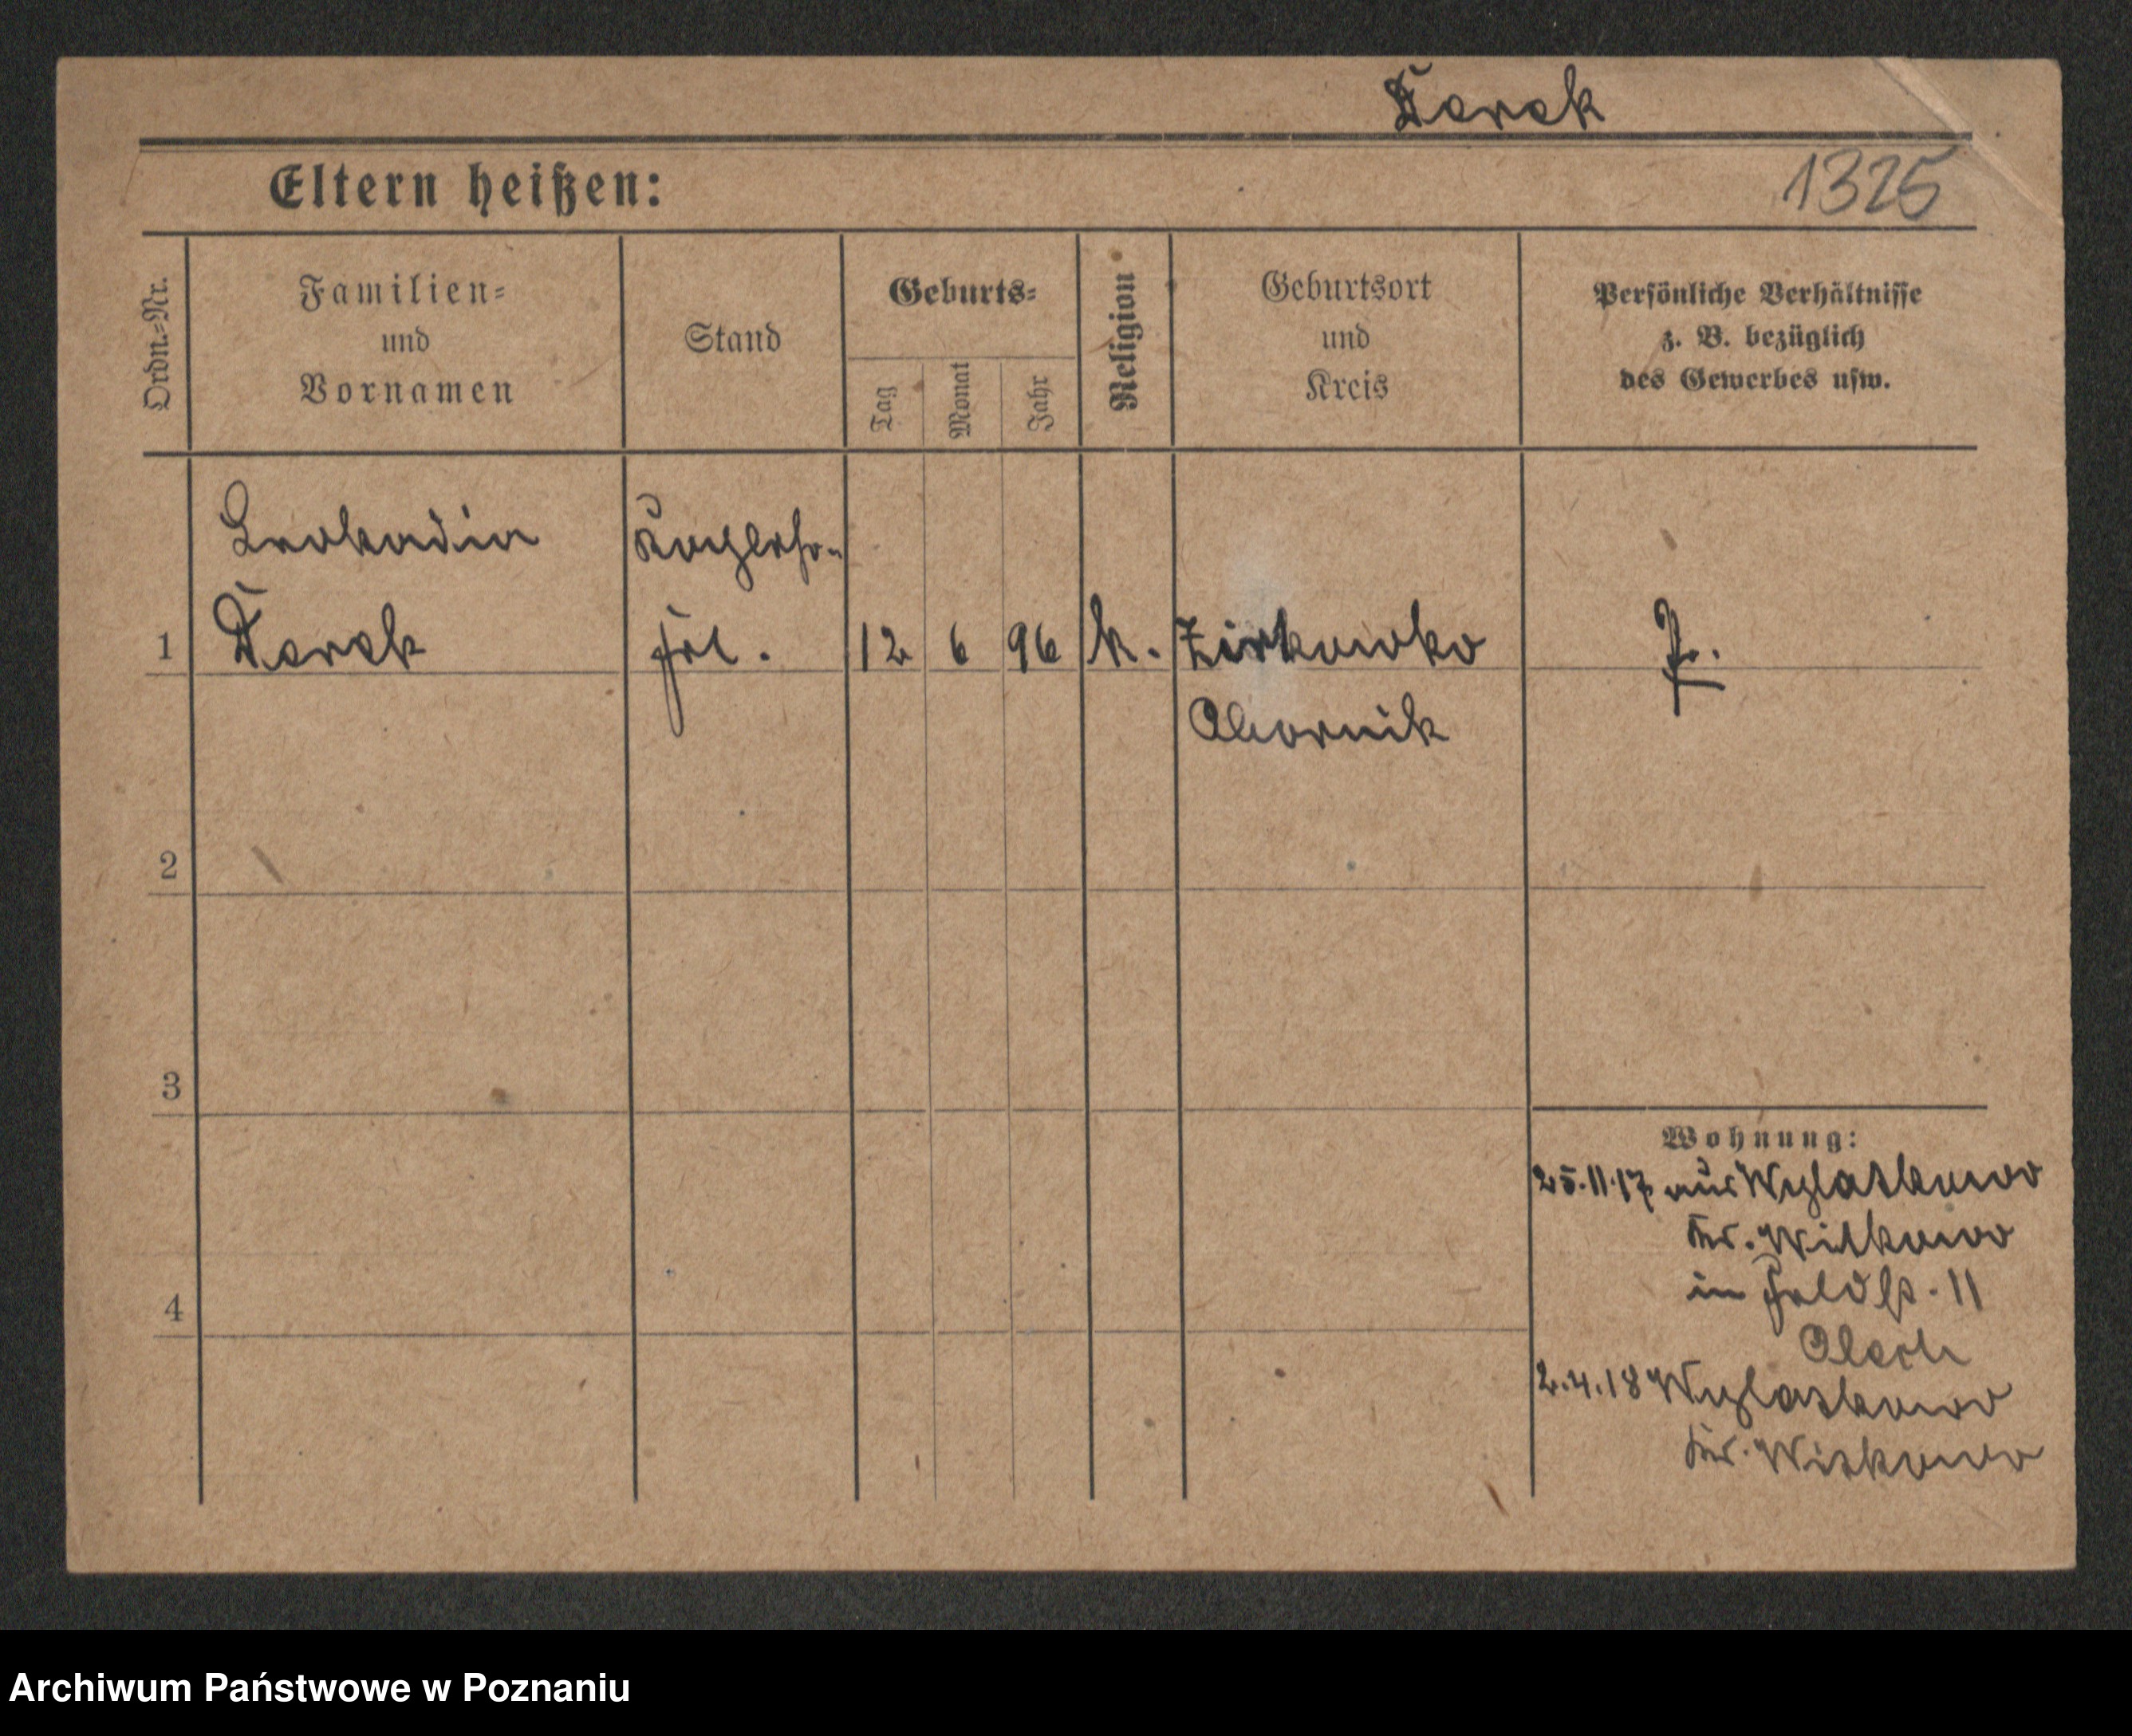 Darek
Eltern heißen:
1325
Ordn.=Nr.
Familien=
und
Vornamen
Stand
Geburts=
Tag
Monat
Jahr
Religion
Geburtsort
und
Kreis
Persönliche Verhältnisse
z. B. bezüglich
des Gewerbes usw.
Leokadia
Darek
1
frl.
12 6 96
k.
Zirkowko
Obornik
P.
2
3
4
Wohnung:
25.11.17 aus
Kr. Witkowo
in Feldst. 11
2.4.18
Kr. Witkowo
Archiwum Państwowe w Poznaniu